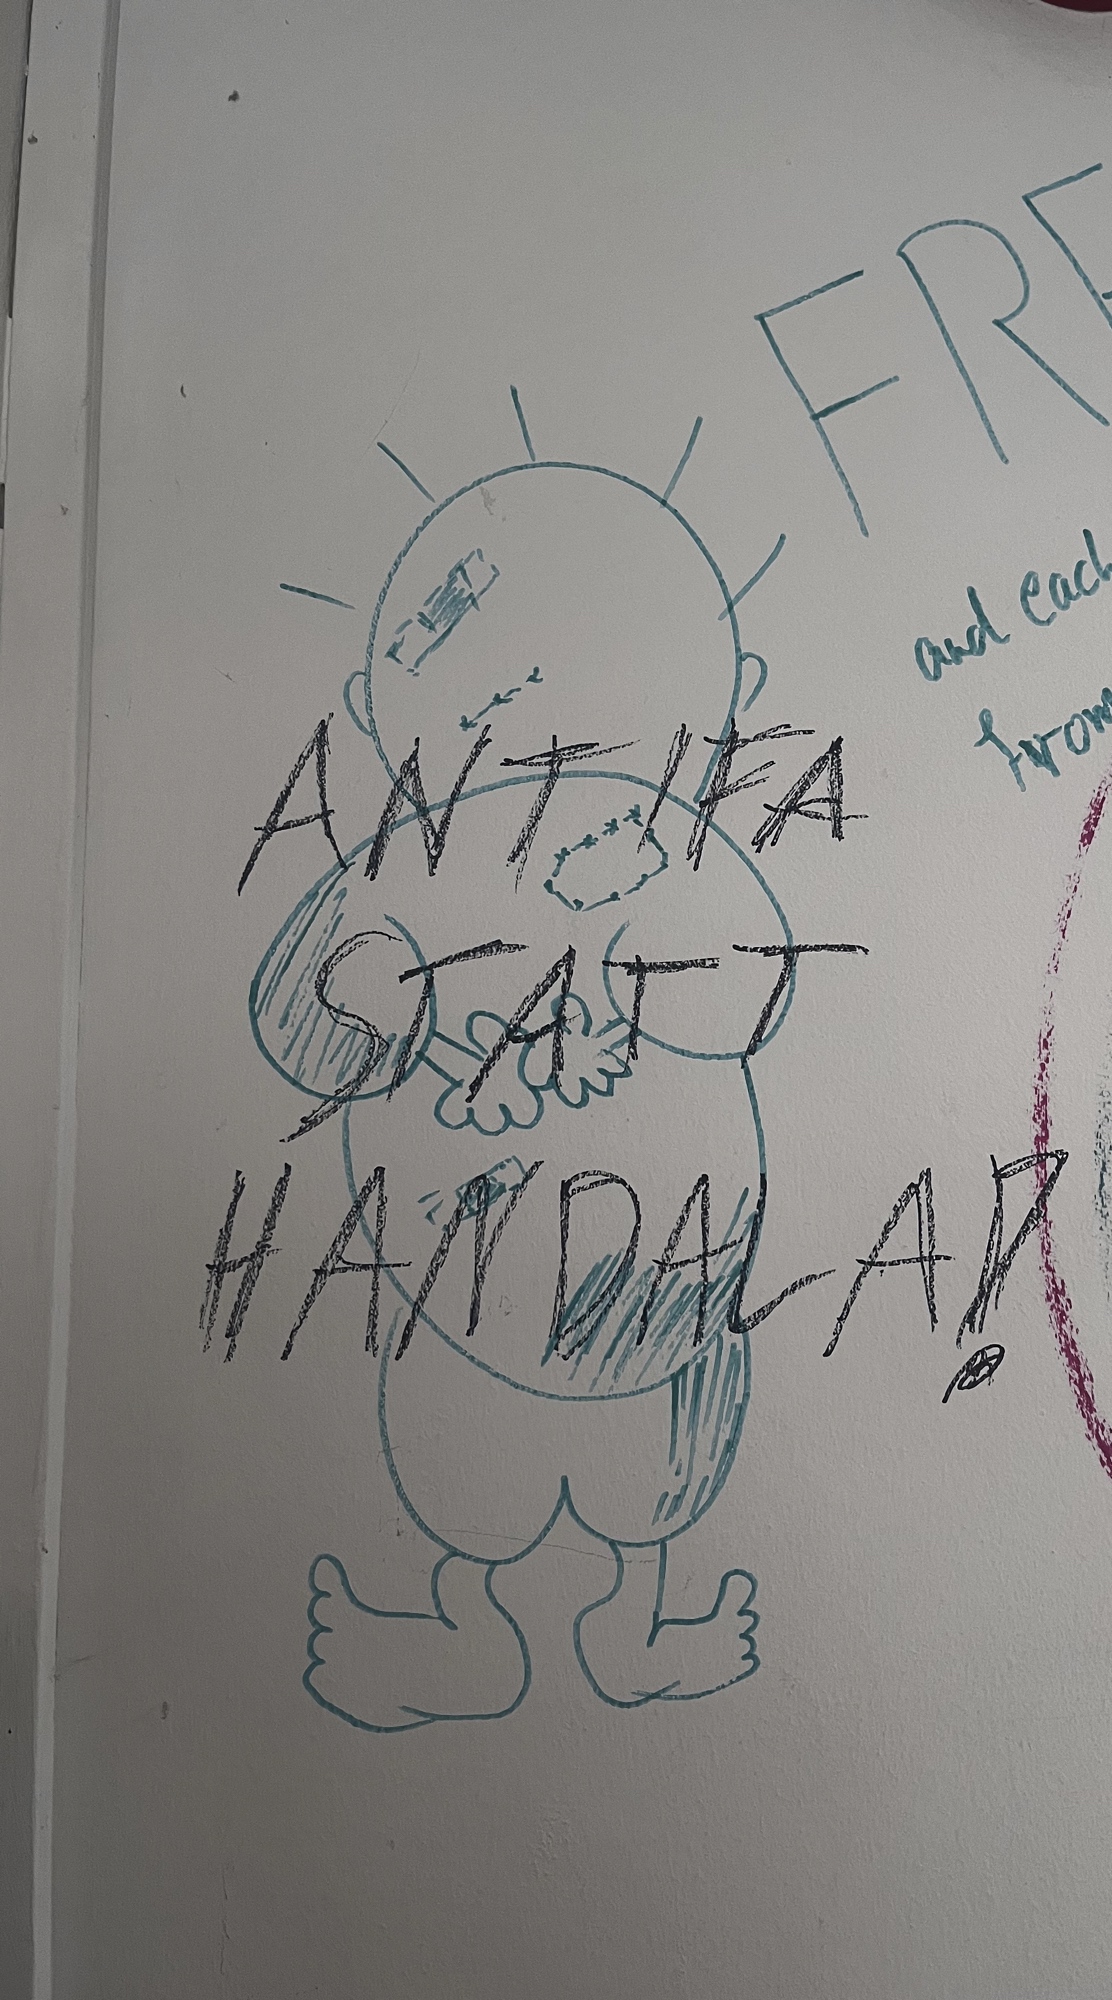 and each
from
ANTIFA
STATT
HANDALA!?